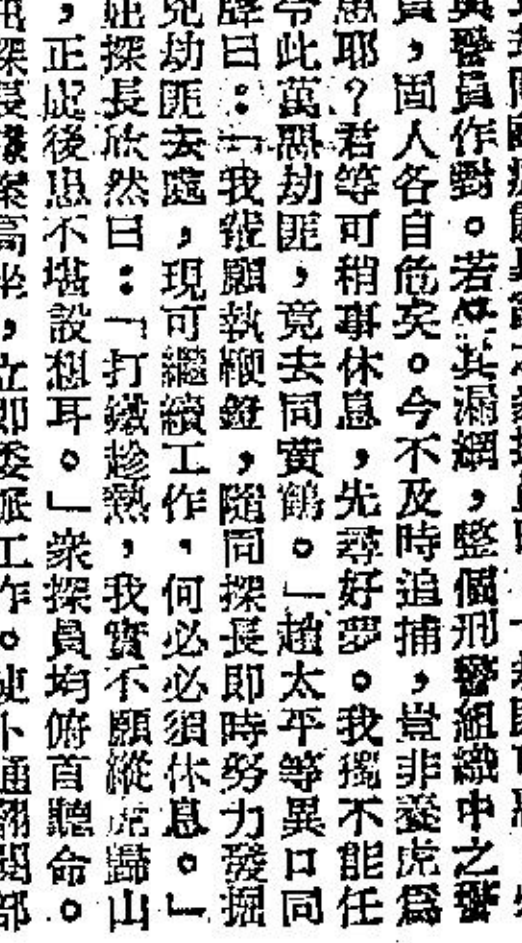 與警員作對。若使其漏網，整個刑警組織中之警
員，固人各自危矣。今不及時追捕，豈非養虎爲
患耶？君等可稍事休息，先尋好夢。我獨不能任
令此萬惡劫匪，竟去同黃鶴。」趙太平等異口同
聲曰：「我輩願執鞭鐙，隨同探長即時努力發掘
兇劫匪去處，現可繼續工作，何必必須休息。」
探長欣然曰：「打鐵趁熱，我實不願縱虎歸山
，正慮後患不堪設想耳。」衆探員均俯首聽命。
探長據案高坐，立即委派工作。